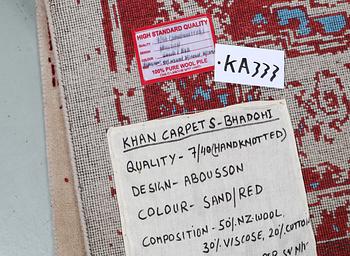 HIGH STANDARD QUALITY
QUALITY
7/40 (HANDKNOTTED)
DESIGN
COLOUR
100% PURE WOOL PILE
.KA333
KHAN CARPETS-BHADOHI
QUALITY- 7/40(HANDKNOTTED)
DESIGN- ABOUSSON
COLOUR- SAND/RED
COMPOSITION- 50% NZ.WOOL.
30% VISCOSE, 20% COTTON